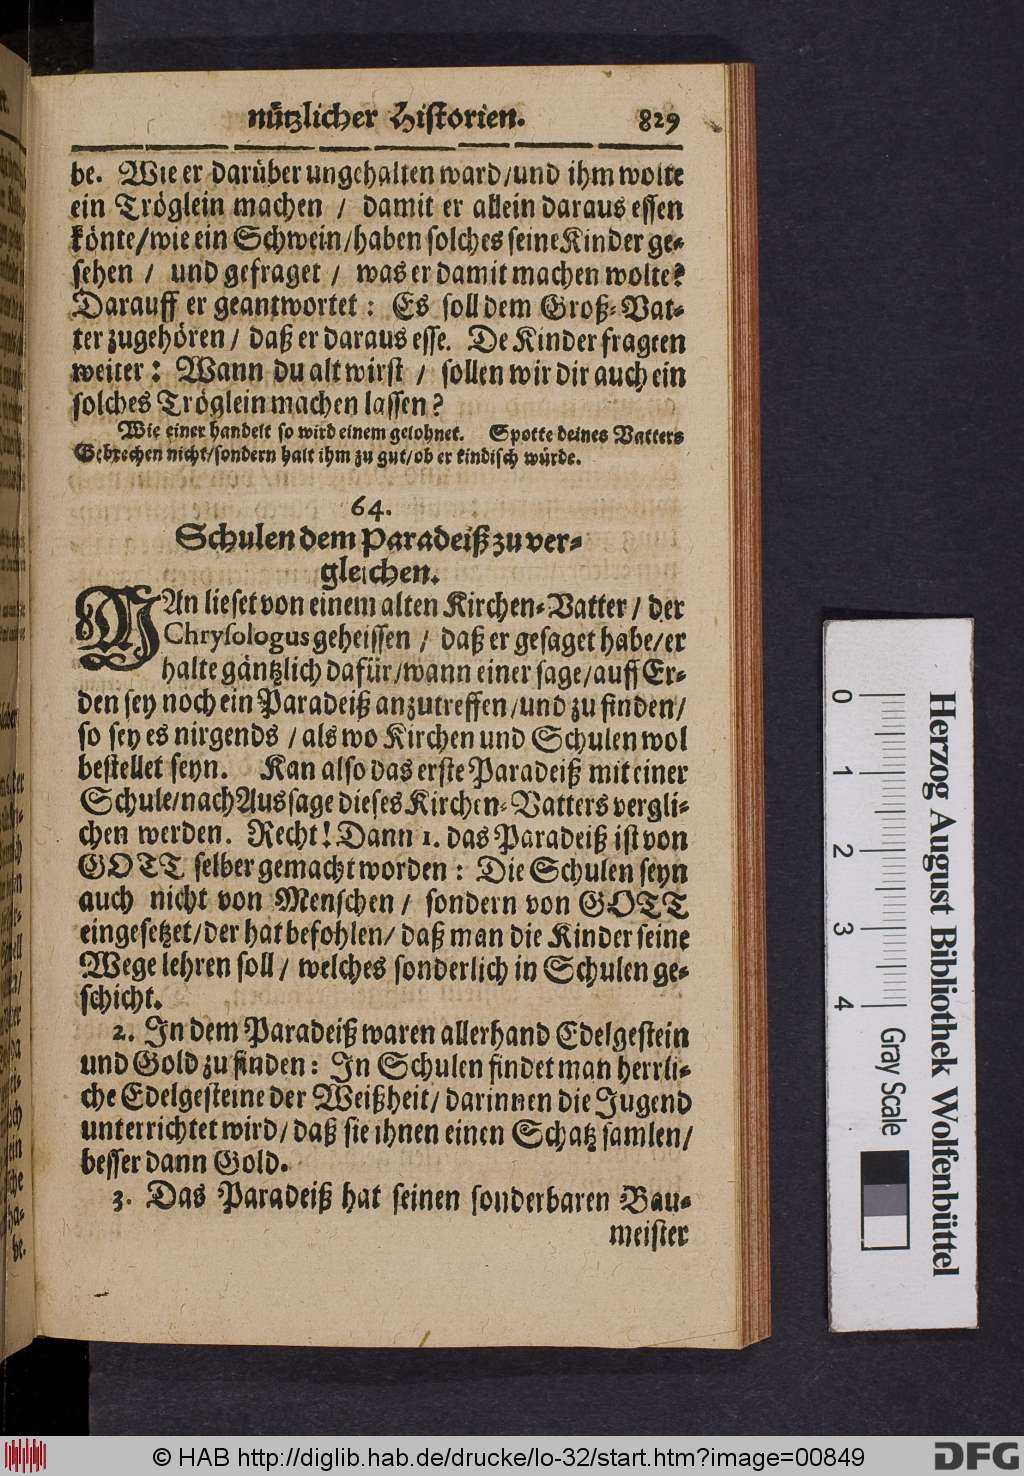 nützlicher Historien. 829
be. Wie er darüber ungehalten ward/und ihm wolte
ein Tröglein machen / damit er allein daraus essen
könte/wie ein Schwein/haben solches seine Kinder ge-
sehen / und gefraget / was er damit machen wolte?
Darauff er geantwortet: Es soll dem Groß-Vat-
ter zugehören / daß er daraus esse. De Kinder fragten
weiter: Wann du alt wirst / sollen wir dir auch ein
solches Tröglein machen lassen?
Wie einer handelt so wird einem gelohnet. Spotte deines Vatters
Gebrechen nicht/sondern halt ihm zu gut/ob er kindisch würde.
64.
Schulen dem Paradeiß zu ver-
gleichen.
MAn lieset von einem alten Kirchen-Vatter / der
Chrysologus geheissen / daß er gesaget habe/er
halte gäntzlich dafür/wann einer sage/auff Er-
den sey noch ein Paradeiß anzutreffen/und zu finden/
so sey es nirgends / als wo Kirchen und Schulen wol
bestellet seyn. Kan also das erste Paradeiß mit einer
Schule/nach Aussage dieses Kirchen-Vatters vergli-
chen werden. Recht! Dann 1. das Paradeiß ist von
GOTT selber gemacht worden: Die Schulen seyn
auch nicht von Menschen / sondern von GOTT
eingesetzet/der hat befohlen/ daß man die Kinder seine
Wege lehren soll / welches sonderlich in Schulen ge-
schicht.
2. In dem Paradeiß waren allerhand Edelgestein
und Gold zu finden: In Schulen findet man herrli-
che Edelgesteine der Weißheit/ darinnen die Jugend
unterrichtet wird/ daß sie ihnen einen Schatz samlen/
besser dann Gold.
3. Das Paradeiß hat seinen sonderbaren Bau-
meister
0 1 2 3 4 Gray Scale
Herzog August Bibliothek Wolfenbüttel
© HAB http://diglib.hab.de/drucke/lo-32/start.htm?image=00849
DFG